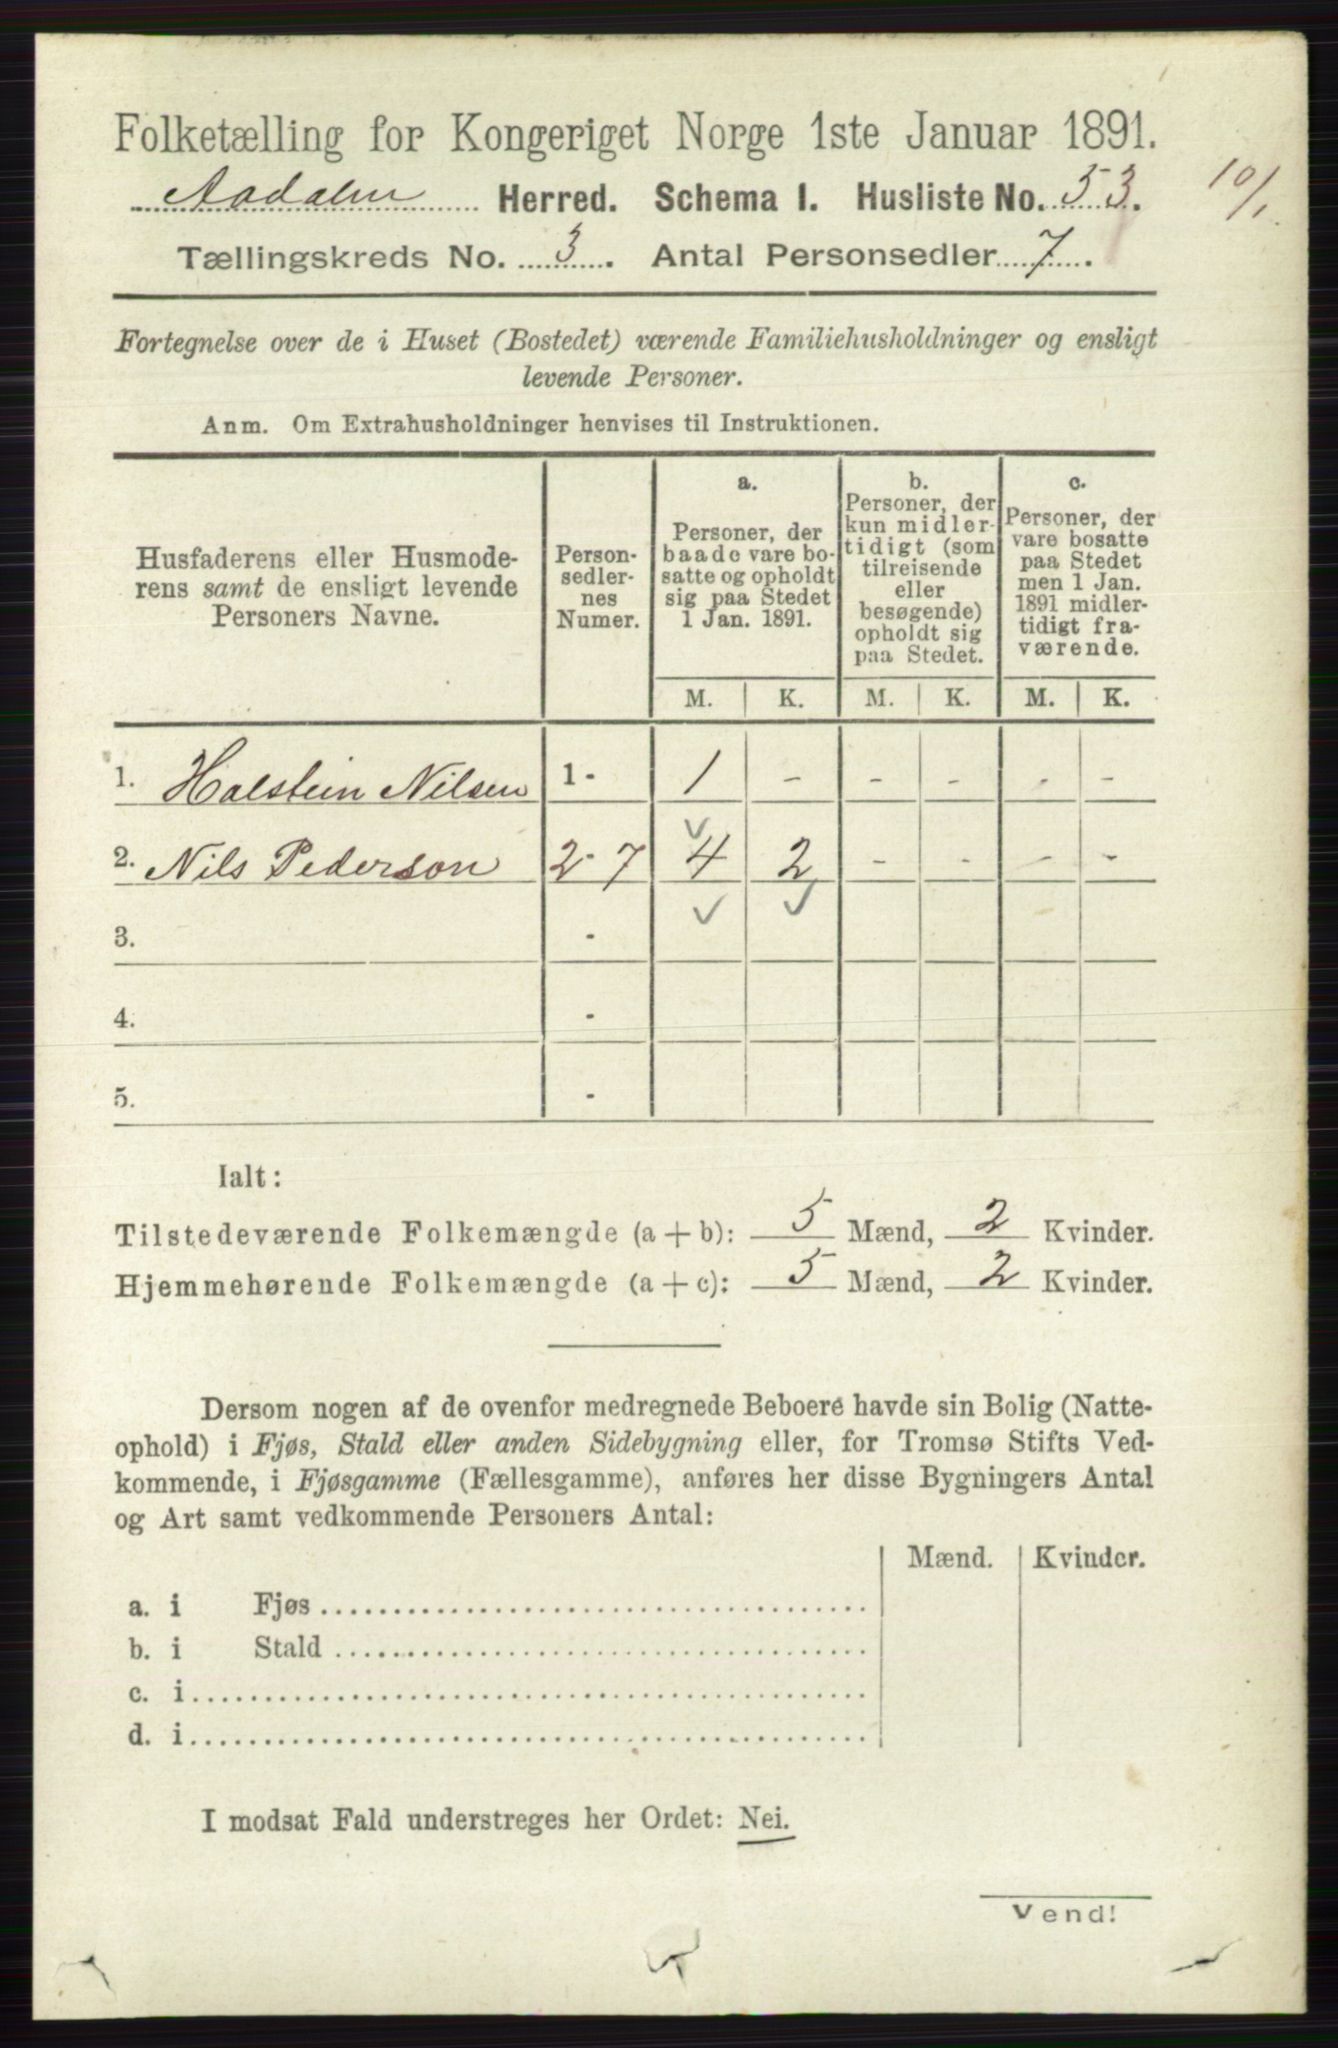 Folketælling for Kongeriget Norge 1ste Januar 1891.
Aadalen Herred. Schema 1. Husliste No. 53. 10/1
Tællingskreds No. 3. Antal Personsedler 7.
Fortegnelse over de i Huset (Bostedet) værende Familiehusholdninger og ensligt
levende Personer.
Anm. Om Extrahusholdninger henvises til Instruktionen.
Husfaderens eller Husmode-
rens samt de ensligt levende
Personers Navne.
Person-
sedler-
nes
Numer.
a.
Personer, der
baade vare bo-
satte og opholdt
sig paa Stedet
1 Jan. 1891.
b.
Personer, der
kun midler-
tidigt (som
tilreisende
eller
besøgende)
opholdt sig
paa Stedet.
c.
Personer, der
vare bosatte
paa Stedet
men 1 Jan.
1891 midler-
tidigt fra-
værende.
M. K. M. K. M. K.
1. Halstein Nilsen 1 - 1 - - - - -
2. Nils Pederson 2 - 7 4 2 - - - -
3. -
4. -
5. -
Ialt:
Tilstedeværende Folkemængde (a + b): 5 Mænd, 2 Kvinder.
Hjemmehørende Folkemængde (a + c): 5 Mænd, 2 Kvinder.
Dersom nogen af de ovenfor medregnede Beboere havde sin Bolig (Natte-
ophold) i Fjøs, Stald eller anden Sidebygning eller, for Tromsø Stifts Ved-
kommende, i Fjøsgamme (Fællesgamme), anføres her disse Bygningers Antal
og Art samt vedkommende Personers Antal:
Mænd. Kvinder.
a. i Fjøs
b. i Stald
c. i
d. i
I modsat Fald understreges her Ordet: Nei.
Vend!